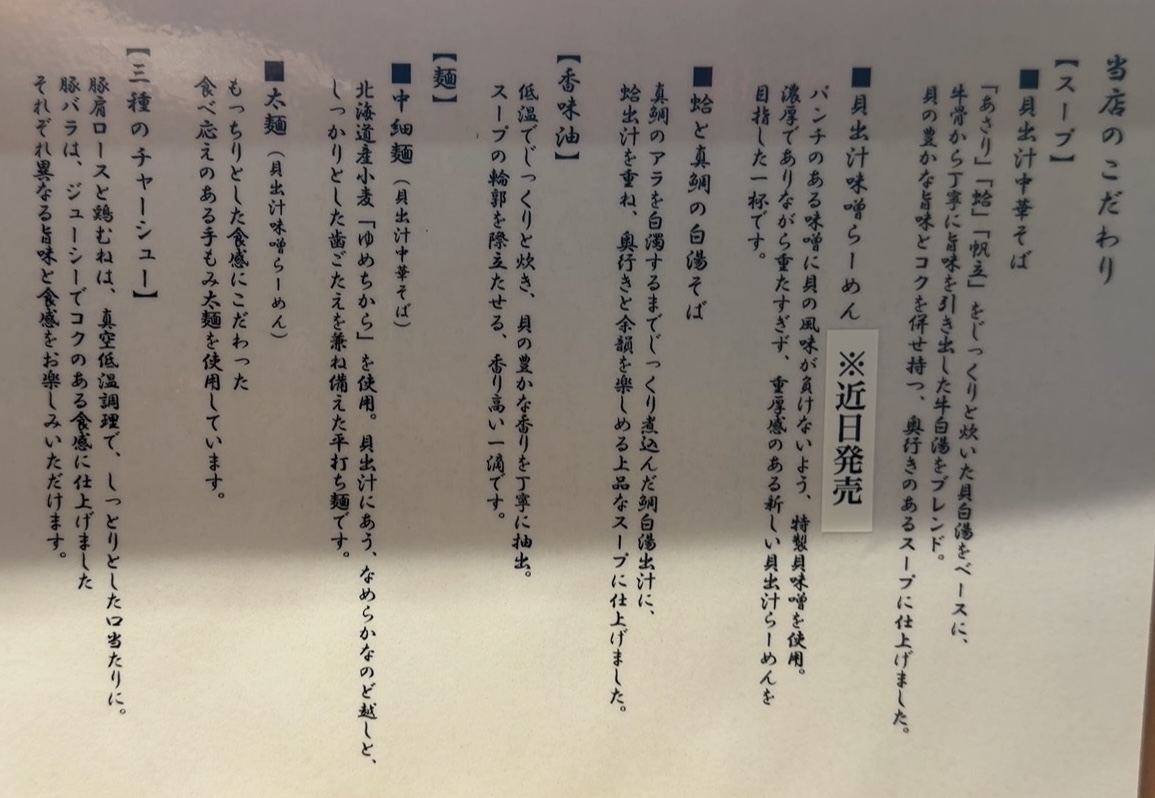 当店のこだわり
【スープ】
■貝出汁中華そば
「あさり」「蛤」「帆立」をじっくりと炊いた貝白湯をベースに、
牛骨から丁寧に旨味を引き出した牛白湯をブレンド。
貝の豊かな旨味とコクを併せ持つ、奥行きのあるスープに仕上げました。
■貝出汁味噌らーめん ※近日発売
パンチのある味噌に貝の風味が負けないよう、特製貝味噌を使用。
濃厚でありながら重たすぎず、重厚感のある新しい貝出汁らーめんを
目指した一杯です。
■蛤と真鯛の白湯そば
真鯛のアラを白濁するまでじっくり煮込んだ鯛白湯出汁に、
蛤出汁を重ね、奥行きと余韻を楽しめる上品なスープに仕上げました。
【香味油】
低温でじっくりと炊き、貝の豊かな香りを丁寧に抽出。
スープの輪郭を際立たせる、香り高い一滴です。
【麺】
■中細麺（貝出汁中華そば）
北海道産小麦「ゆめちから」を使用。貝出汁にあう、なめらかなのど越しと、
しっかりとした歯ごたえを兼ね備えた平打ち麺です。
■太麺（貝出汁味噌らーめん）
もっちりとした食感にこだわった
食べ応えのある手もみ太麺を使用しています。
【三種のチャーシュー】
豚肩ロースと鶏むねは、真空低温調理で、しっとりとした口当たりに。
豚バラは、ジューシーでコクのある食感に仕上げました
それぞれ異なる旨味と食感をお楽しみいただけます。